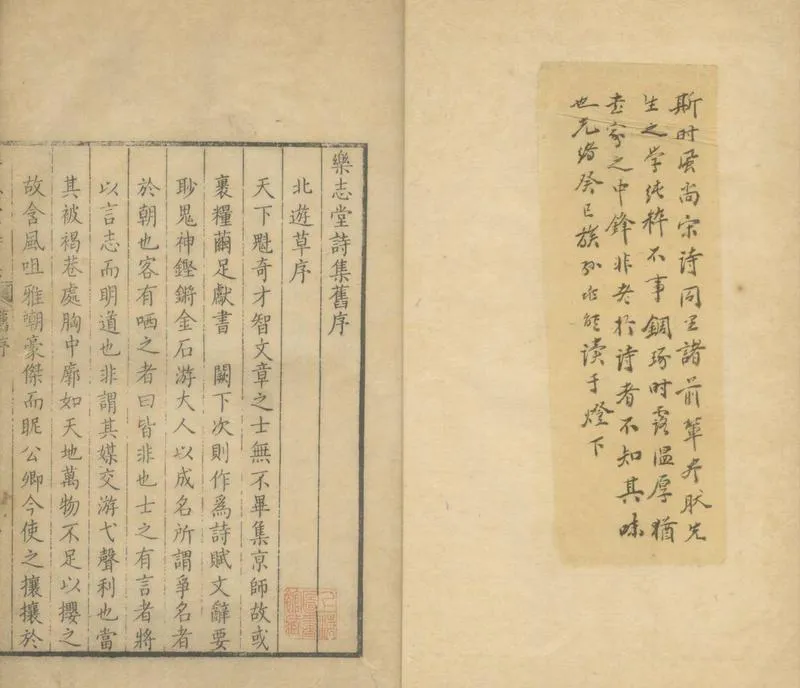 斯时风尚宋诗同里諸前輩
生之学纯粹不事鐫琢时露温厚犹
画家之中鋒非老於诗者不知其味
也光绪癸巳族孙 读于燈下
樂志堂詩集舊序
北遊草序
天下魁奇才智文章之士無不畢集京師故或
裹糧繭足獻書 闕下次則作爲詩賦文辭要
眇鬼神鏗鏘金石游大人以成名所謂爭名者
於朝也客有哂之者曰皆非也士之有言者將
以言志而明道也非謂其媒交游弋聲利也當
其被褐巷處胸中廓如天地萬物不足以攖之
故含風咀雅嘲豪傑而眤公卿今使之攘攘於
舊序